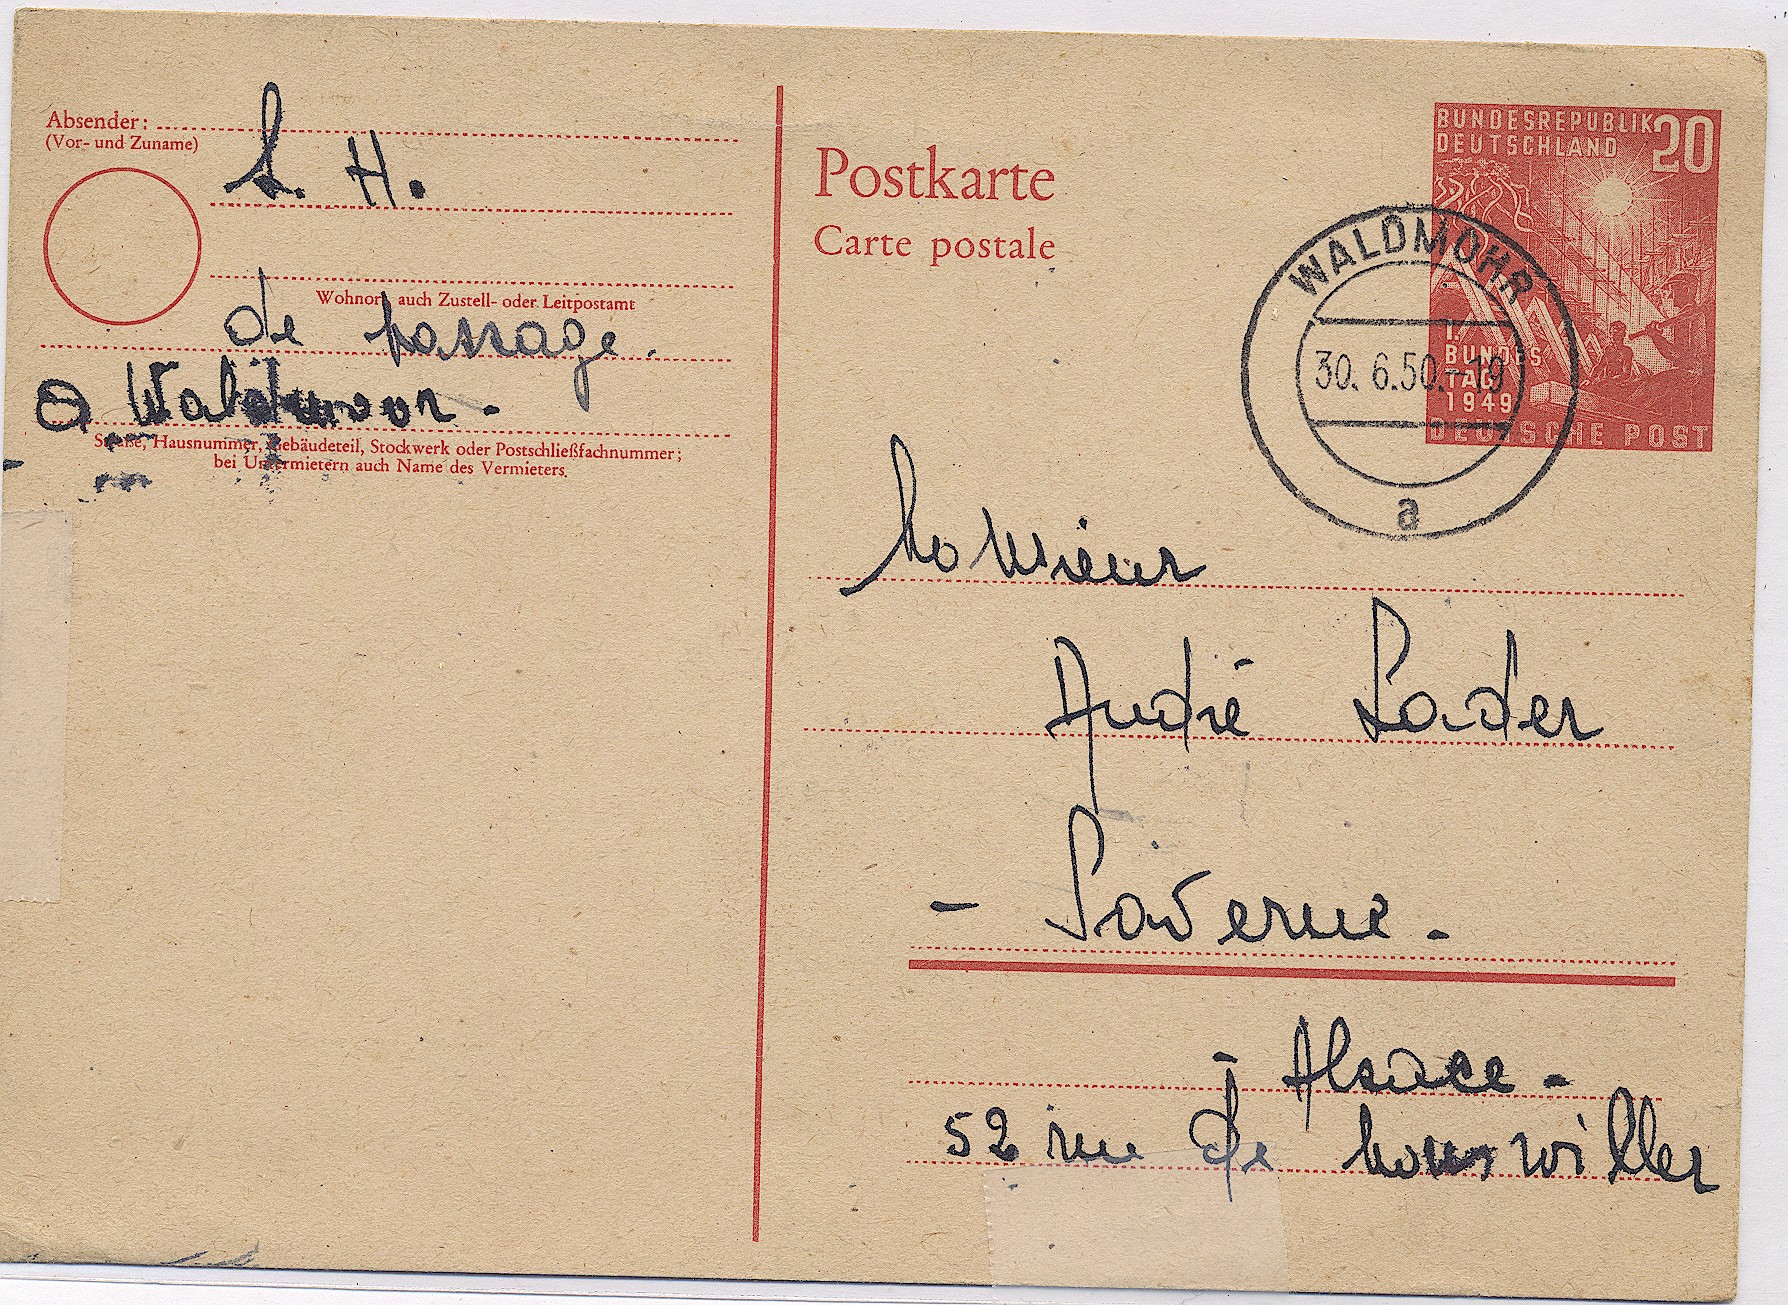 Absender:
(Vor- und Zuname)
L. H.
Wohnort, auch Zustell- oder Leitpostamt
de passage.
a Waldmoor.
Straße, Hausnummer, Gebäudeteil, Stockwerk oder Postschließfachnummer;
bei Untermietern auch Name des Vermieters.
Postkarte
Carte postale
BUNDESREPUBLIK
DEUTSCHLAND
20
1.
BUNDES
TAG
1949
DEUTSCHE POST
WALDMOHR
30. 6.50.-19
a
Monsieur
André Lader
- Saverne -
- Alsace -
52 rue de